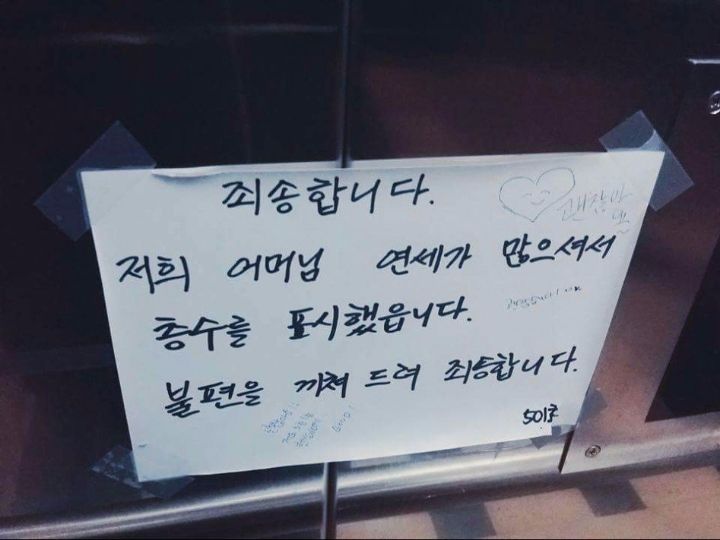 죄송합니다.
괜찮아
요~
저희 어머님 연세가 많으셔서
층수를 표시했읍니다.
괜찮습니다!
불편을 끼쳐 드려 죄송합니다.
501호